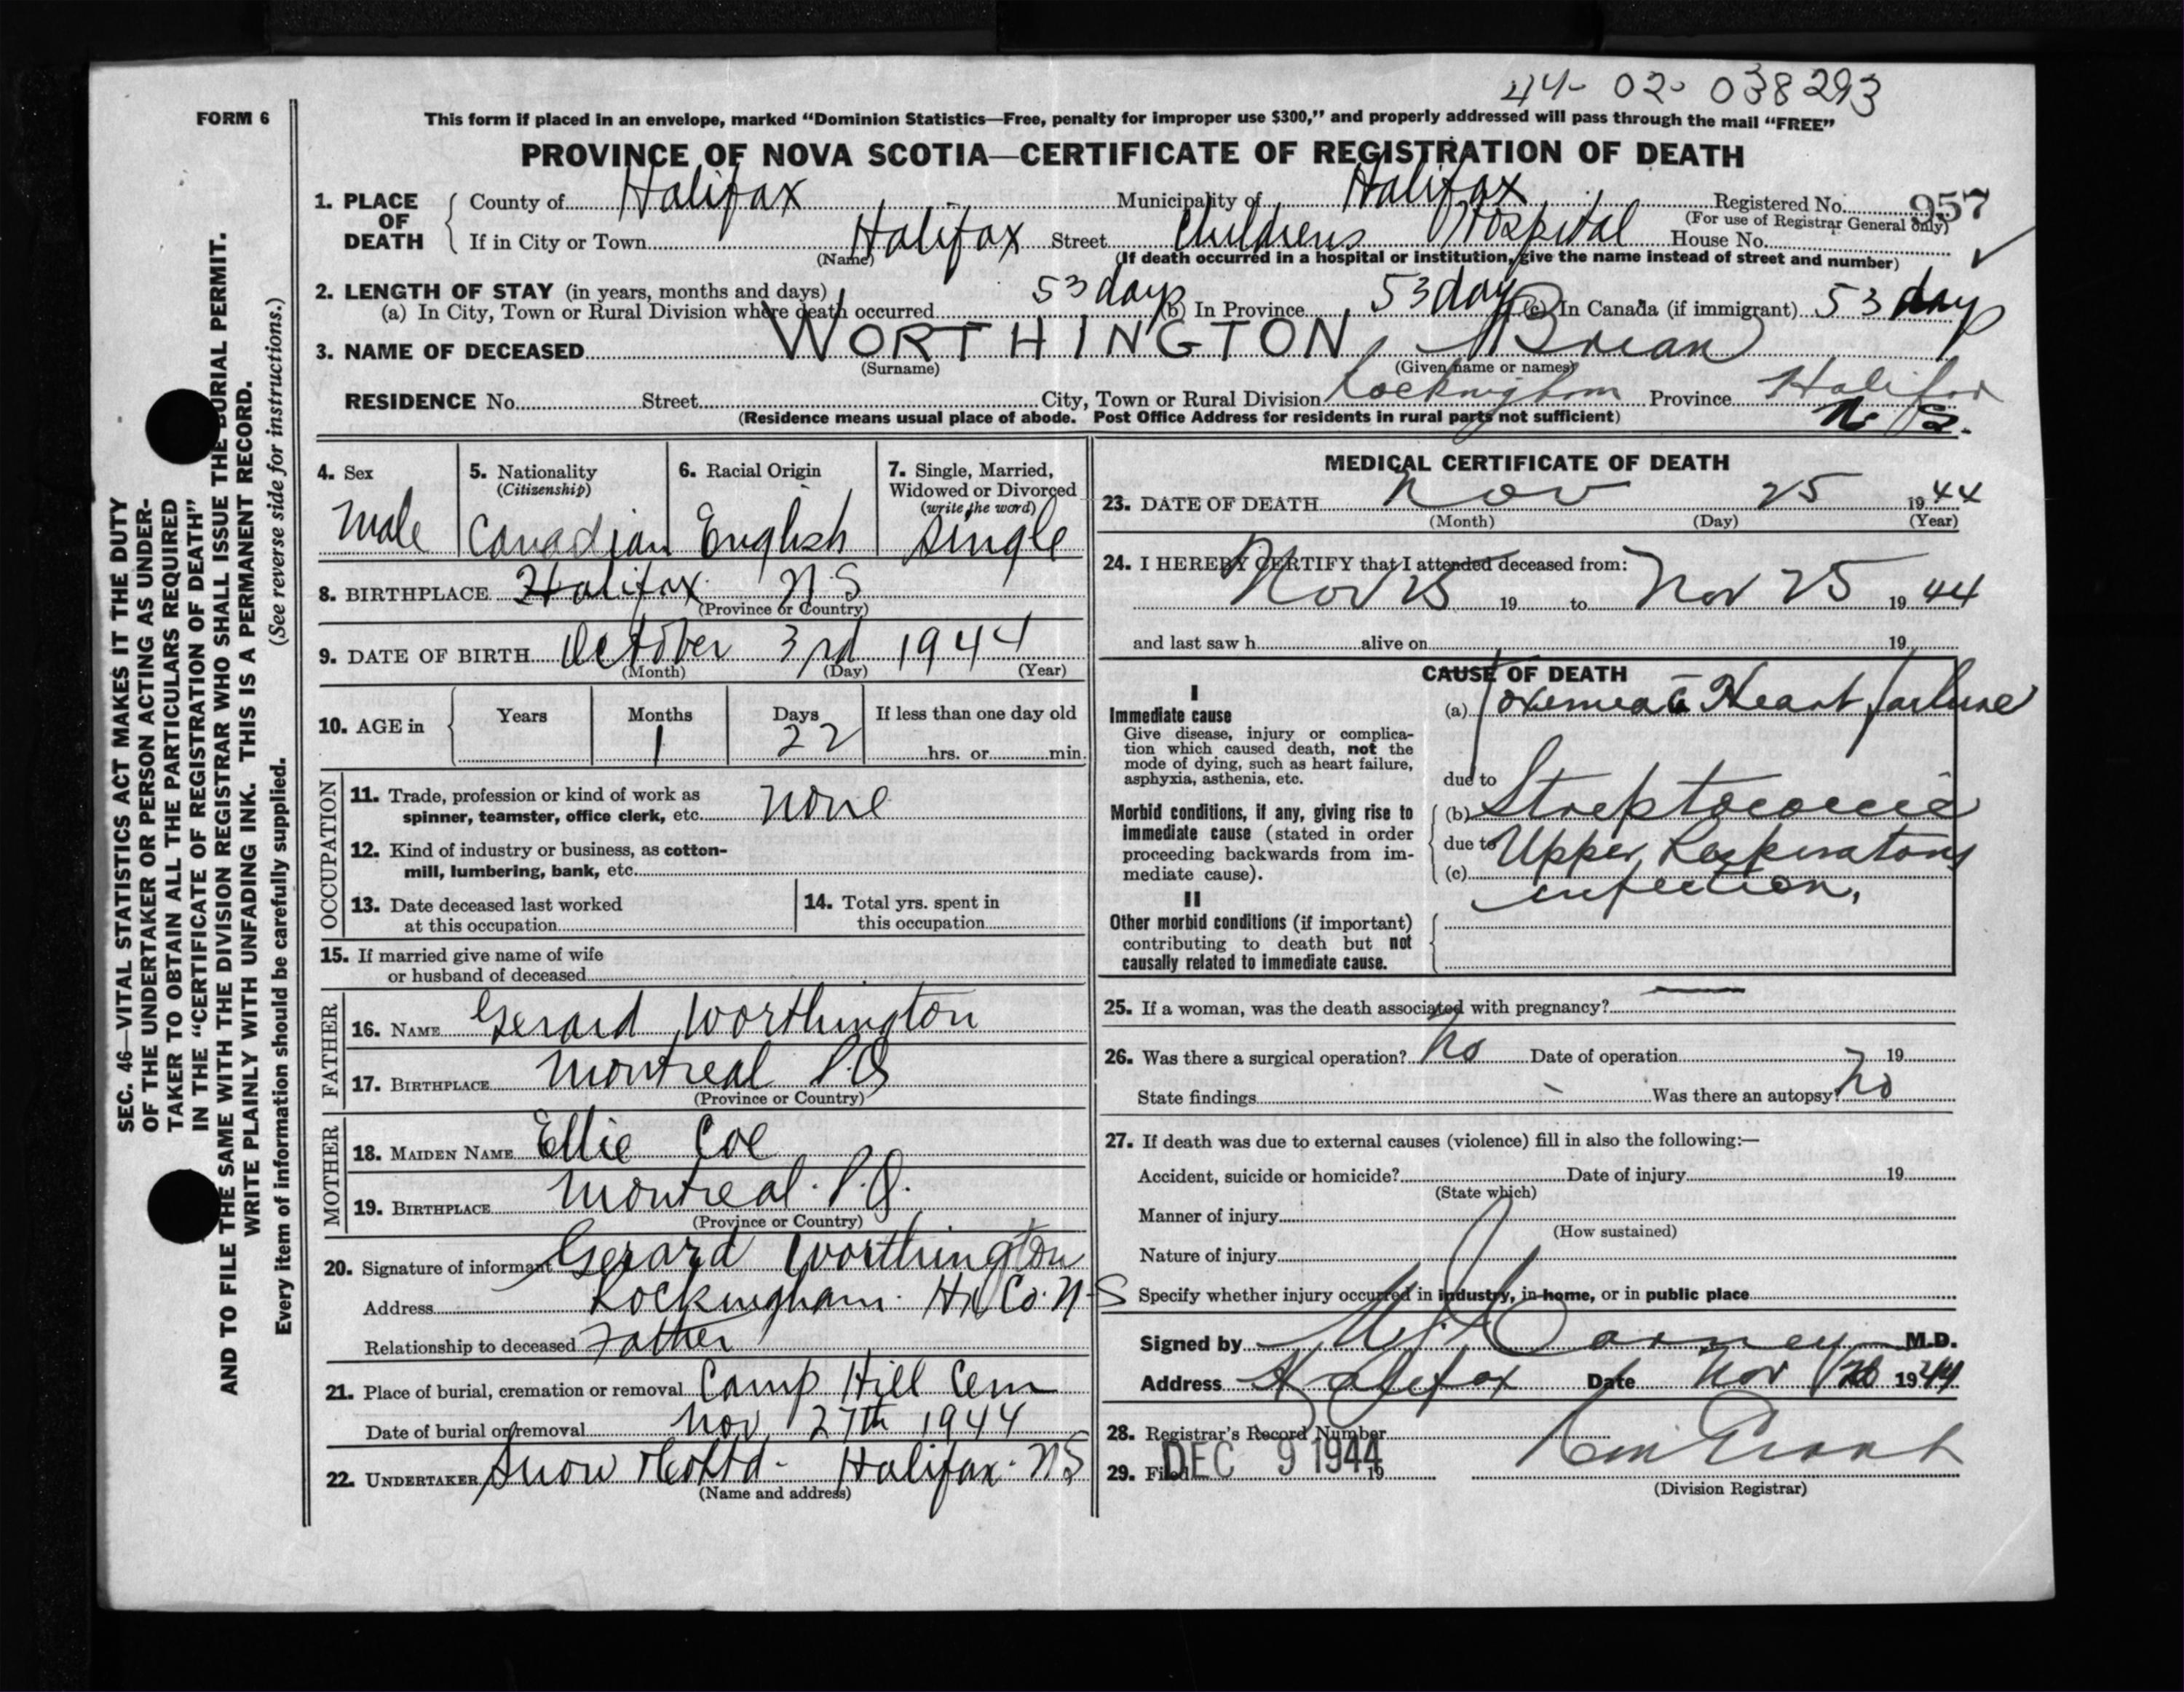 44-02-038293
FORM 6
This form if placed in an envelope, marked "Dominion Statistics—Free, penalty for improper use $300," and properly addressed will pass through the mail "FREE"
PROVINCE OF NOVA SCOTIA—CERTIFICATE OF REGISTRATION OF DEATH
1. PLACE OF DEATH County of Halifax Municipality of Halifax Registered No. 957
(For use of Registrar General only)
If in City or Town Halifax Street Childrens Hospital House No.
(Name) (If death occurred in a hospital or institution, give the name instead of street and number)
2. LENGTH OF STAY (in years, months and days)
(a) In City, Town or Rural Division where death occurred 53 days (b) In Province 53 days (c) In Canada (if immigrant) 53 days
3. NAME OF DECEASED WORTHINGTON, Brian
(Surname) (Given name or names)
RESIDENCE No. Street City, Town or Rural Division Rockingham Province Halifax
N.S.
(Residence means usual place of abode. Post Office Address for residents in rural parts not sufficient)
4. Sex Male
5. Nationality (Citizenship) Canadian
6. Racial Origin English
7. Single, Married, Widowed or Divorced (write the word) Single
8. BIRTHPLACE Halifax N.S
(Province or Country)
9. DATE OF BIRTH October 3rd 1944
(Month) (Day) (Year)
10. AGE in Years Months 1 Days 22 If less than one day old
hrs. or min.
OCCUPATION
11. Trade, profession or kind of work as
spinner, teamster, office clerk, etc. None
12. Kind of industry or business, as cotton-
mill, lumbering, bank, etc.
13. Date deceased last worked
at this occupation
14. Total yrs. spent in
this occupation
15. If married give name of wife
or husband of deceased
FATHER
16. NAME Gerard Worthington
17. BIRTHPLACE Montreal P.Q
(Province or Country)
MOTHER
18. MAIDEN NAME Ellie Coe
19. BIRTHPLACE Montreal. P.Q.
(Province or Country)
20. Signature of informant Gerard Worthington
Address Rockingham. Hx Co. N-S
Relationship to deceased Father
21. Place of burial, cremation or removal Camp Hill Cem
Date of burial or removal Nov 27th 1944
22. UNDERTAKER Snow & Co Ltd - Halifax. NS
(Name and address)
MEDICAL CERTIFICATE OF DEATH
23. DATE OF DEATH Nov 25 1944
(Month) (Day) (Year)
24. I HEREBY CERTIFY that I attended deceased from:
Nov 25 19 to Nov 25 1944
and last saw h alive on 19
CAUSE OF DEATH
I
Immediate cause
Give disease, injury or complica-
tion which caused death, not the
mode of dying, such as heart failure,
asphyxia, asthenia, etc.
(a) Toxemia c̄ Heart failure
due to
Morbid conditions, if any, giving rise to
immediate cause (stated in order
proceeding backwards from im-
mediate cause).
(b) Streptococcic
due to Upper Respiratory
(c) infection,
II
Other morbid conditions (if important)
contributing to death but not
causally related to immediate cause.
25. If a woman, was the death associated with pregnancy? —
26. Was there a surgical operation? No Date of operation 19
State findings Was there an autopsy? No
27. If death was due to external causes (violence) fill in also the following:—
Accident, suicide or homicide? Date of injury 19
(State which)
Manner of injury
(How sustained)
Nature of injury
Specify whether injury occurred in industry, in home, or in public place
Signed by Carney M.D.
Address Halifax Date Nov 1944
28. Registrar's Record Number
29. Filed DEC 9 1944 19
(Division Registrar)
SEC. 46—VITAL STATISTICS ACT MAKES IT THE DUTY
OF THE UNDERTAKER OR PERSON ACTING AS UNDER-
TAKER TO OBTAIN ALL THE PARTICULARS REQUIRED
IN THE "CERTIFICATE OF REGISTRATION OF DEATH"
AND TO FILE THE SAME WITH THE DIVISION REGISTRAR WHO SHALL ISSUE THE BURIAL PERMIT.
WRITE PLAINLY WITH UNFADING INK. THIS IS A PERMANENT RECORD.
Every item of information should be carefully supplied. (See reverse side for instructions.)